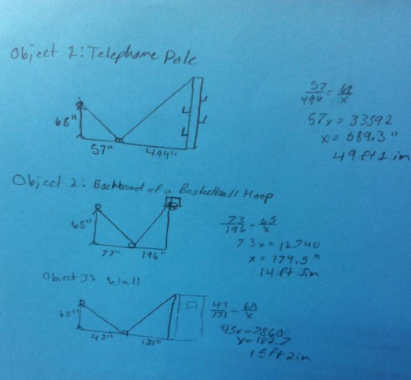 Object 1: Telephone Pole
68"
57"
494"
57/494 = 68/x
57x = 33592
x = 589.3"
49 ft 1 in
Object 2: Backboard of a Basketball Hoop
65"
73"
196"
73/196 = 65/x
73x = 12740
x = 174.5"
14 ft 5in
Object 3: Wall
60"
43"
131"
43/131 = 60/x
43x = 7860
15 ft 2 in